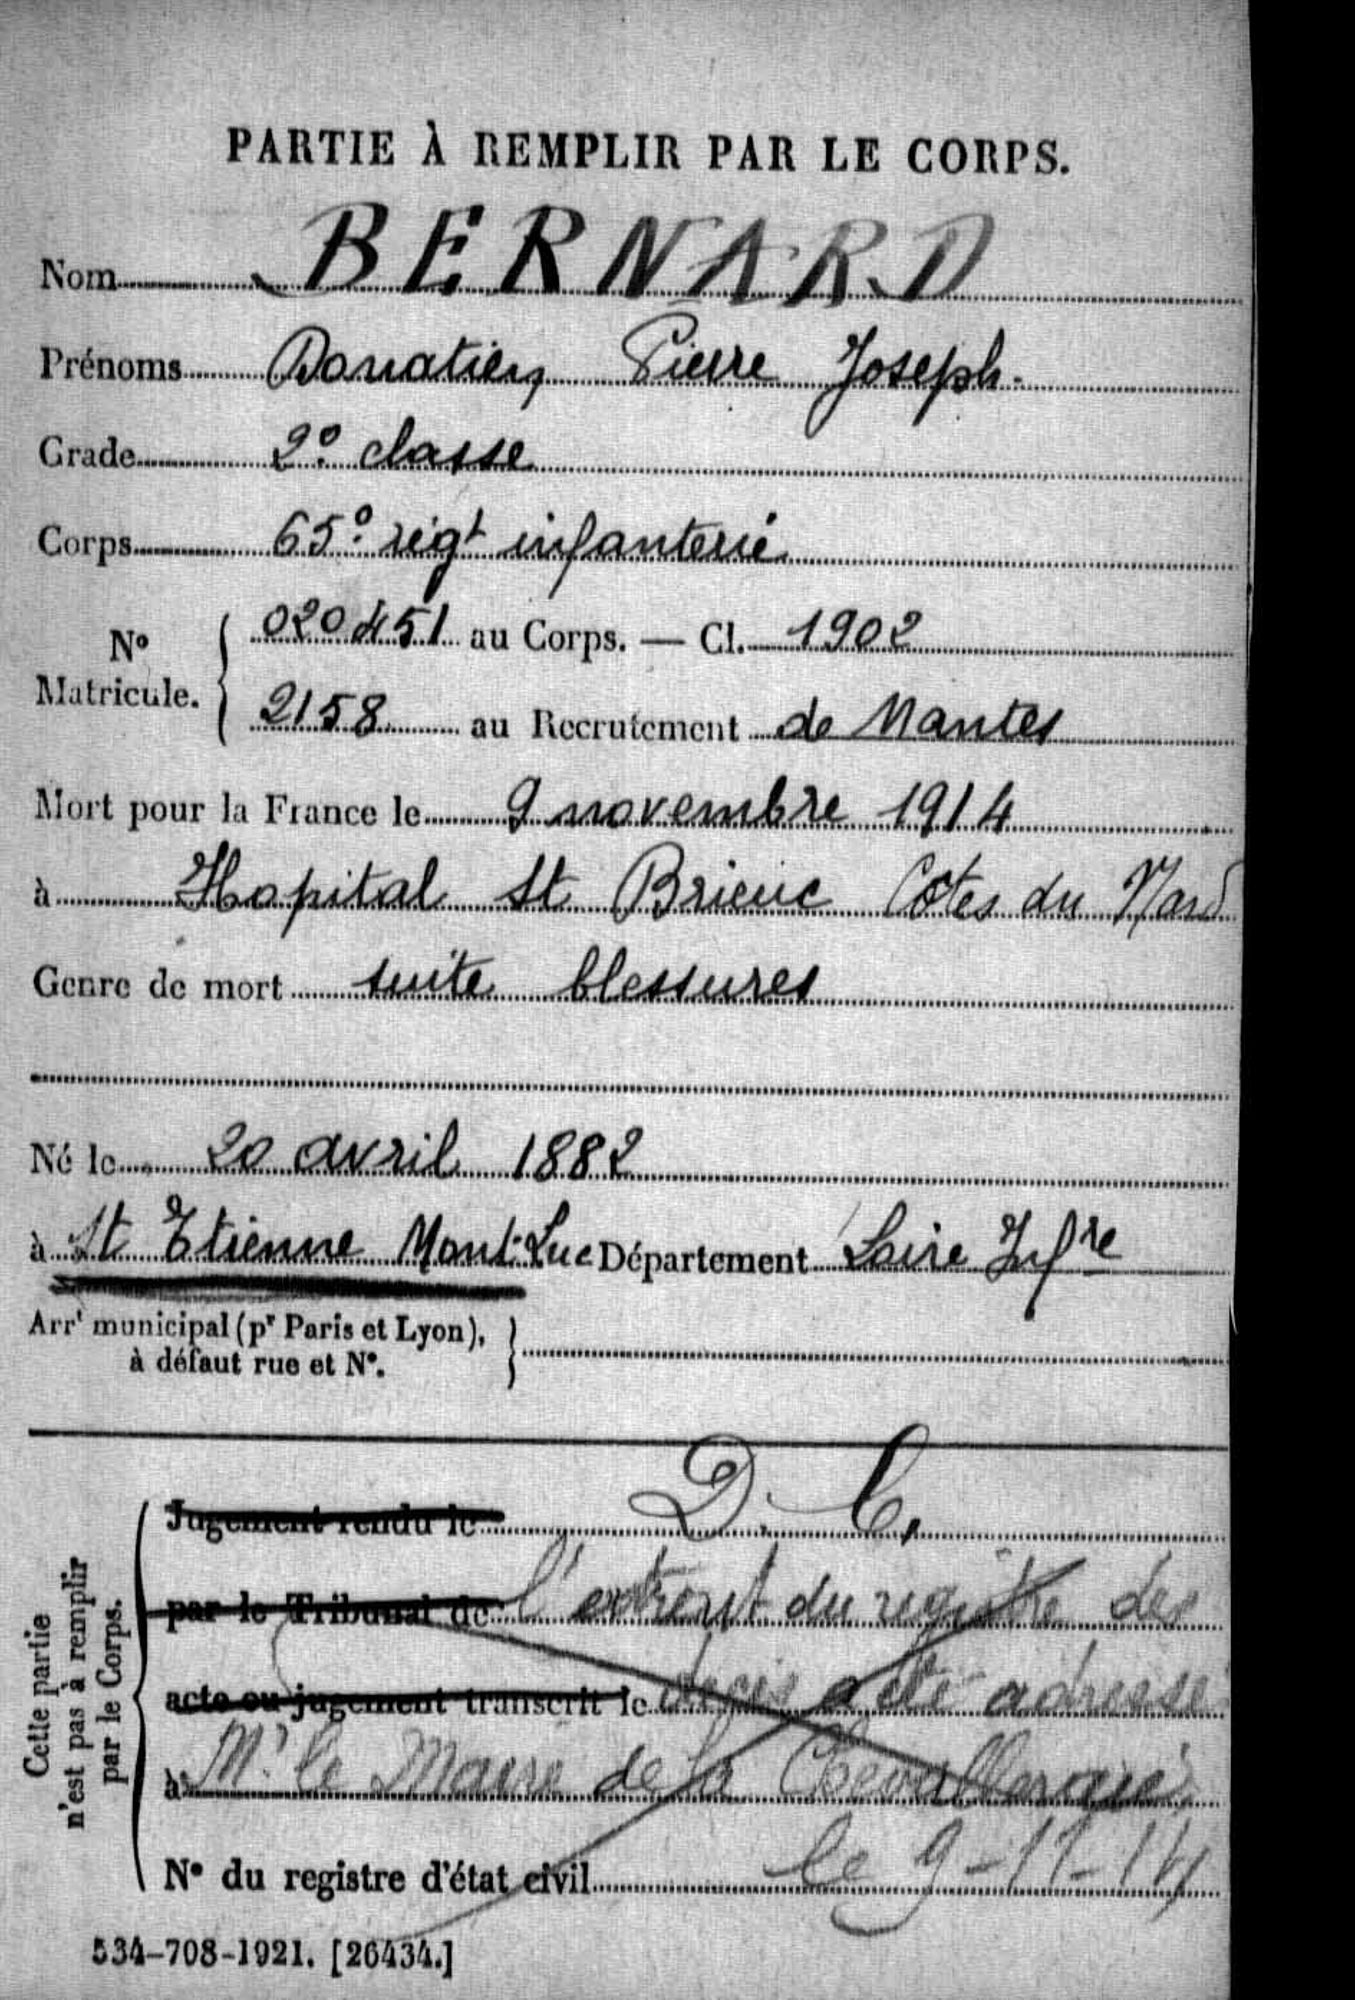 PARTIE À REMPLIR PAR LE CORPS.
Nom BERNARD
Prénoms Donatien Pierre Joseph.
Grade 2e classe
Corps 65e régt infanterie
No Matricule. { 020451 au Corps. — Cl. 1902
2158 au Recrutement de Nantes
Mort pour la France le 9 novembre 1914
à Hopital St Brieuc Côtes du Nord
Genre de mort suite blessures
Né le 20 avril 1882
à St Etienne Mont-Luc Département Loire Infre
Arrt municipal (pr Paris et Lyon), }
à défaut rue et No.
Cette partie n'est pas à remplir par le Corps.
Jugement rendu le D. C.
par le Tribunal de l'extrait du registre des
acte ou jugement transcrit le décès a été adressé
à Mr le Maire de la Chevallerais
No du registre d'état civil le 9-11-14
534-708-1921. [26434.]